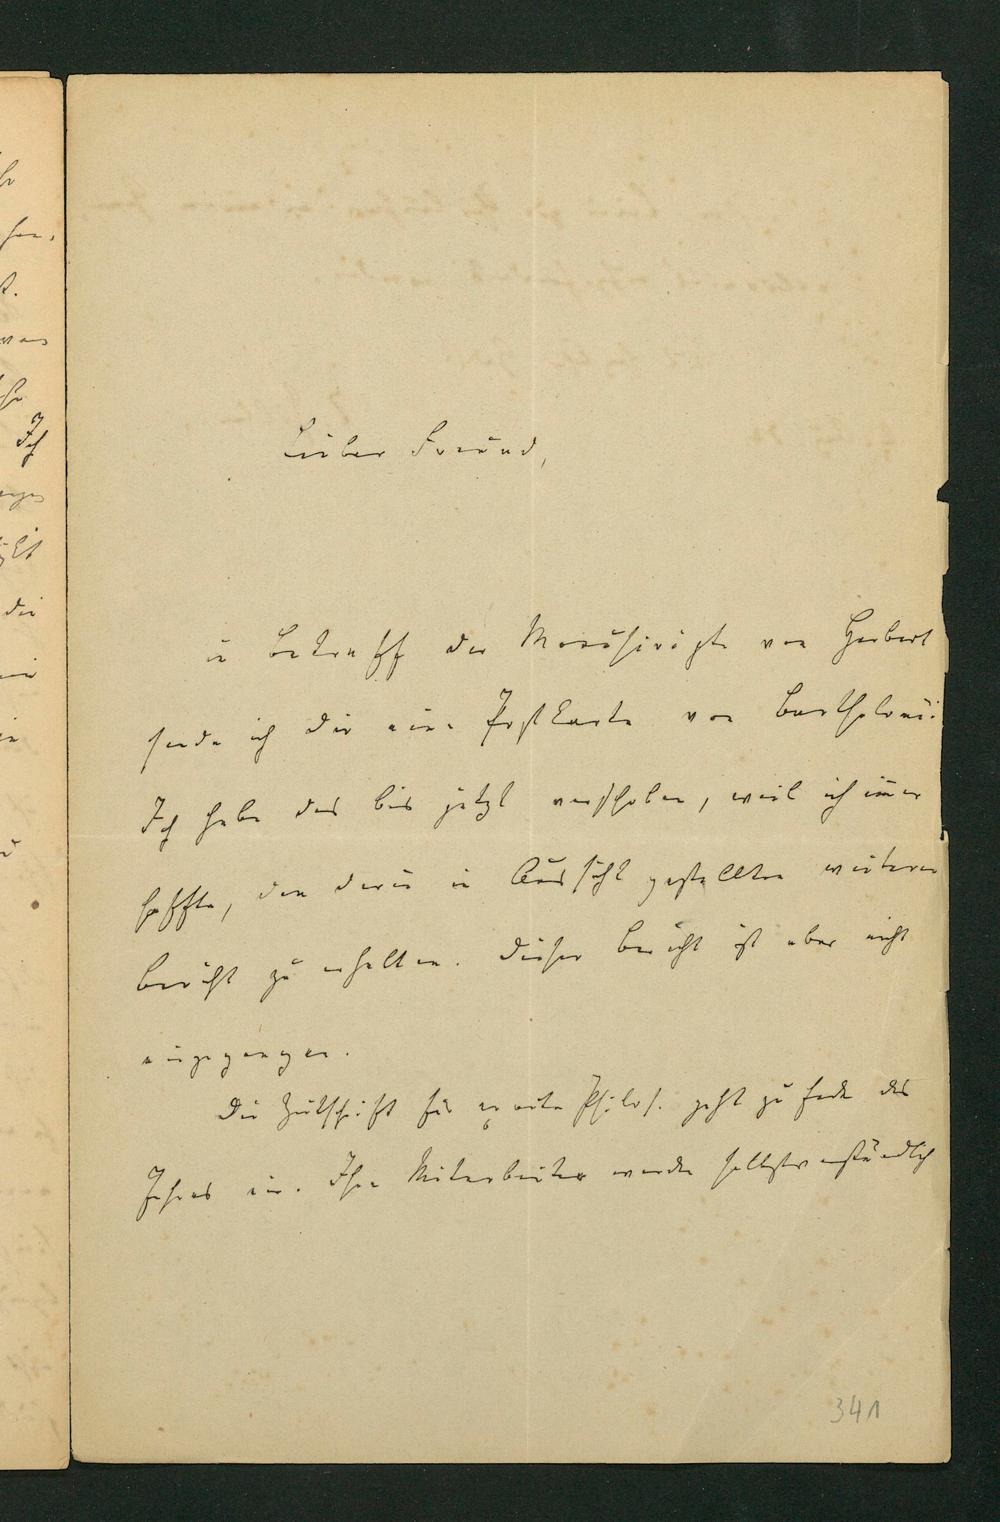 Lieber Freund,
in Betreff der Manuscripte von Herbart
sende ich dir eine Postkarte von Bartholomäi.
Ich habe das bis jetzt verschoben, weil ich immer
hoffte, den darin in Aussicht gestellten weiteren
Bericht zu erhalten. Dieser Bericht ist aber nicht
eingegangen.
Die Zeitschrift für exacte Philos. geht zu Ende des
Jahres ein. Ihre Mitarbeiter werden selbstverständlich
341